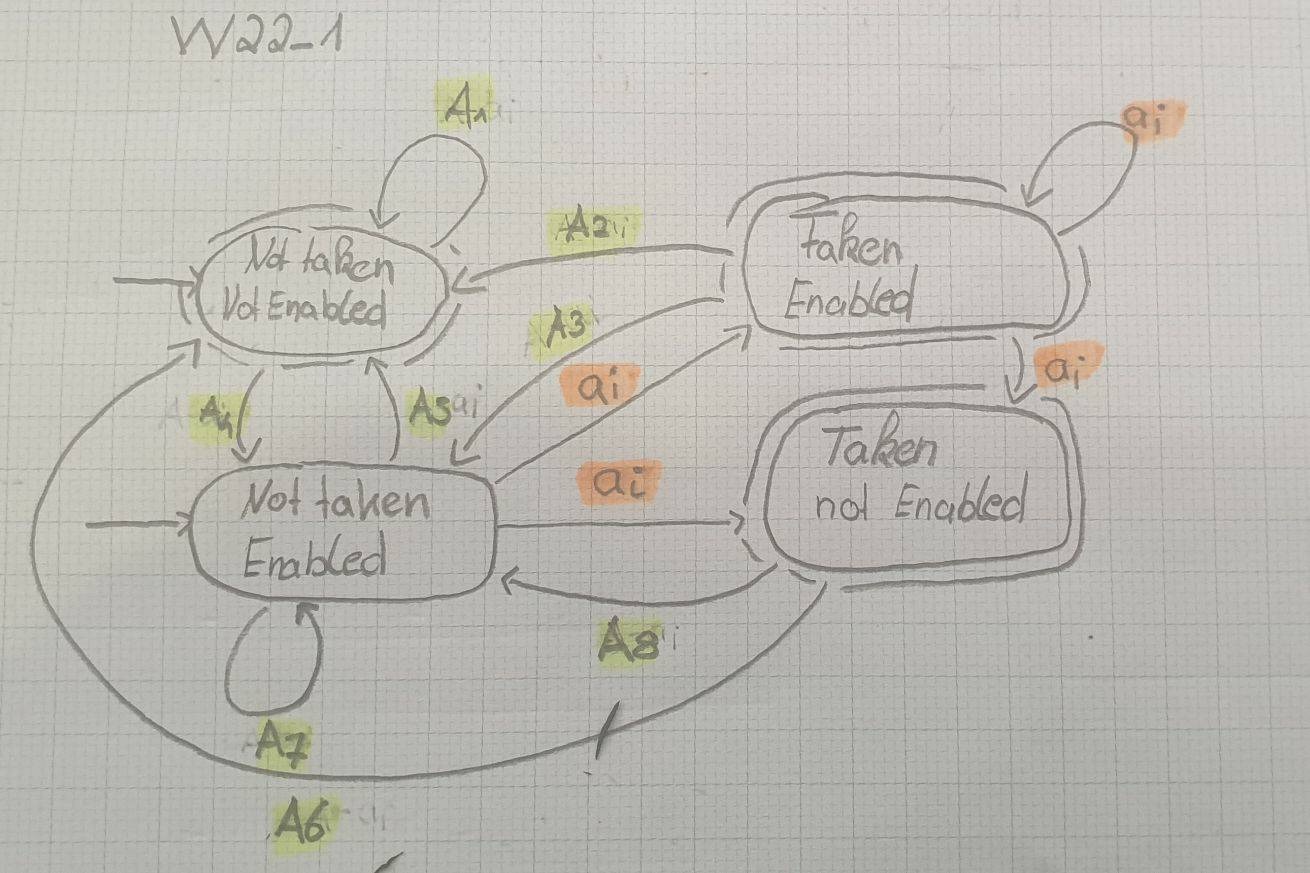 W22-1
A1
ai
A2
Not taken
Not Enabled
Taken
Enabled
A3
ai
ai
A4
A5
ai
Taken
not Enabled
Not taken
Enabled
A8
A7
A6